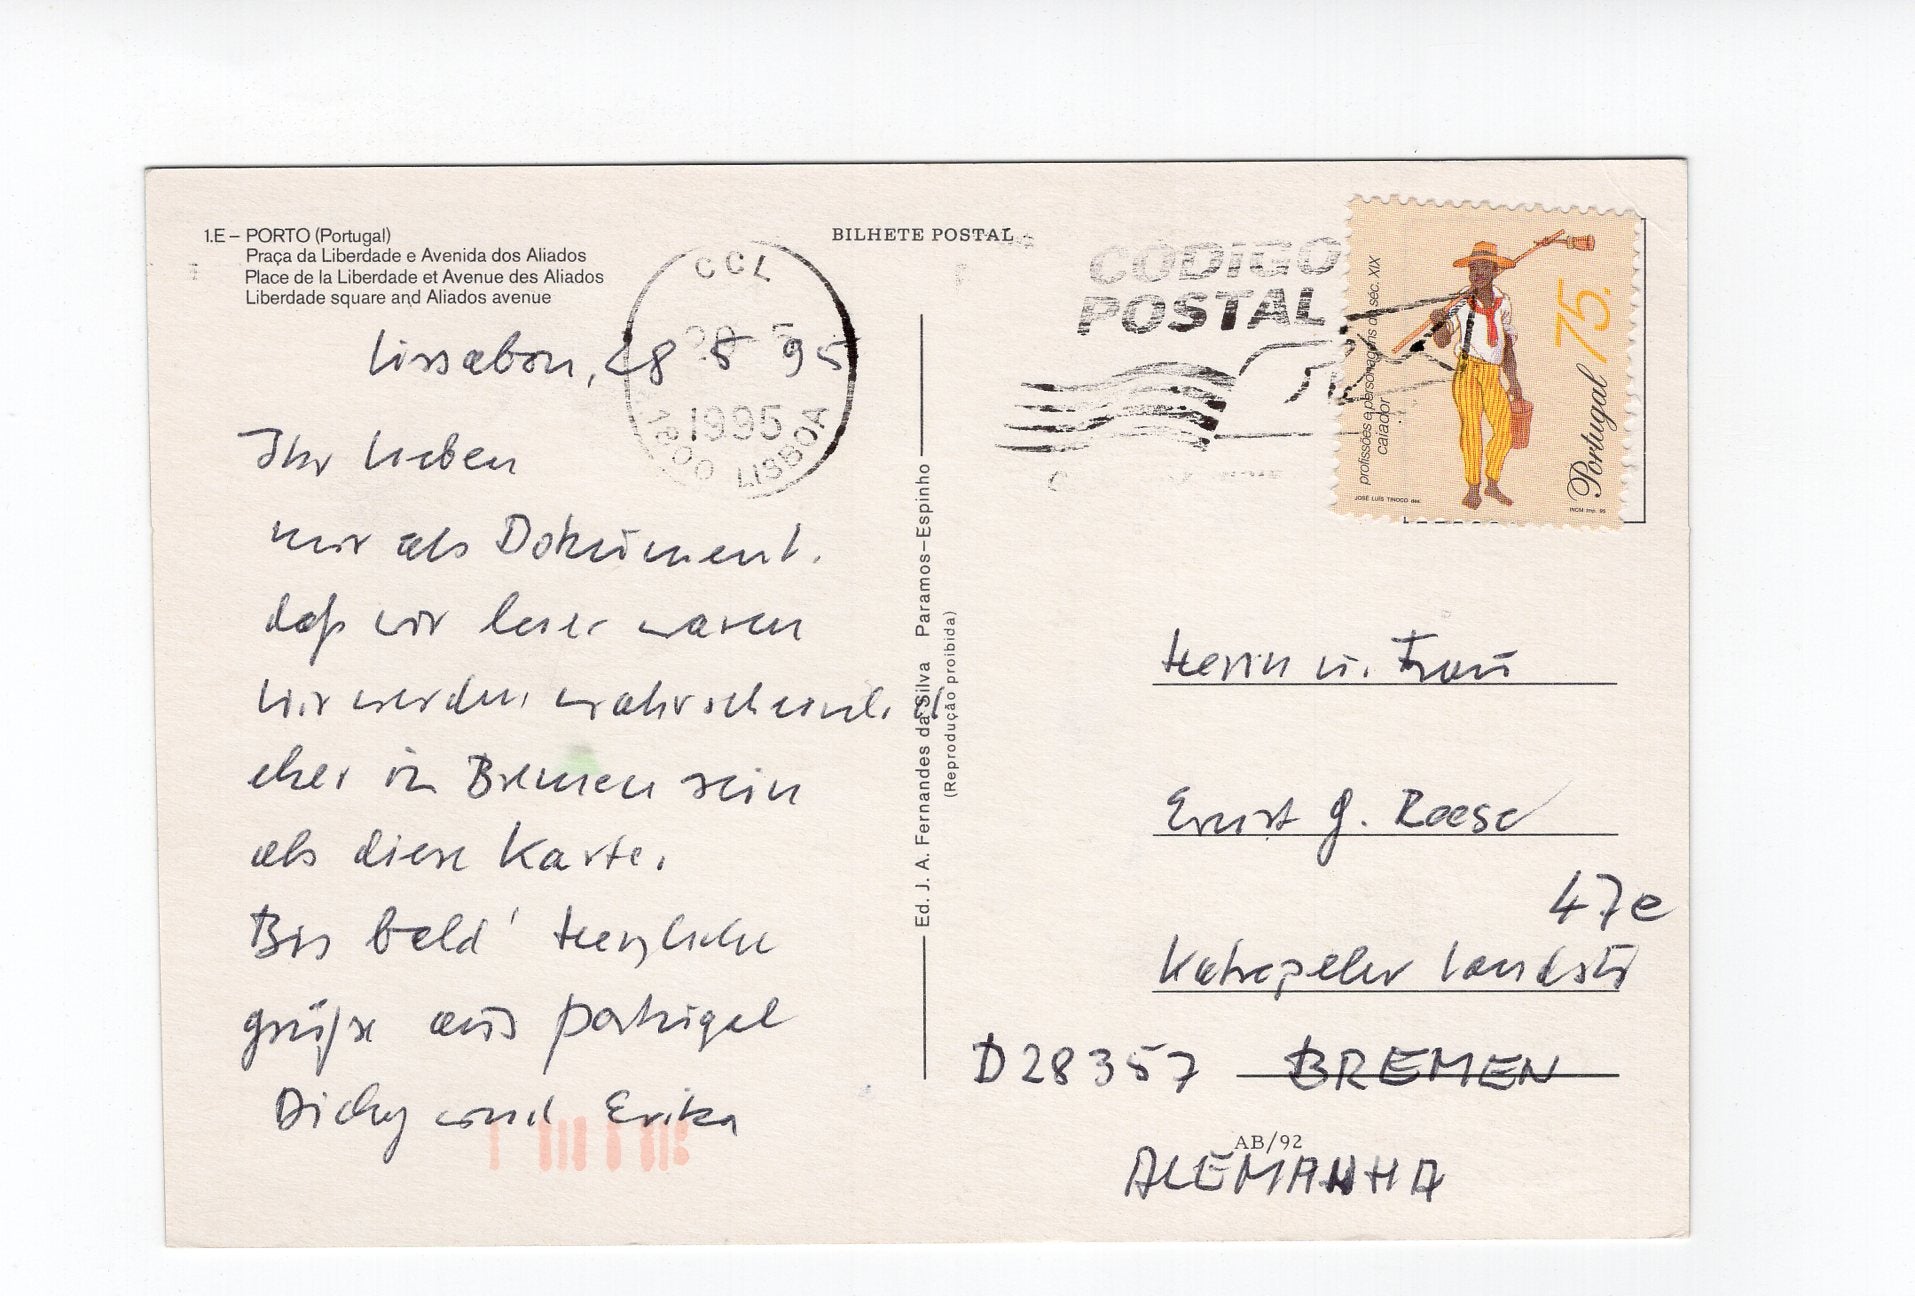 1.E – PORTO (Portugal)
Praça da Liberdade e Avenida dos Aliados
Place de la Liberdade et Avenue des Aliados
Liberdade square and Aliados avenue
BILHETE POSTAL
CCL
1995
LISBOA
CÓDIGO
POSTAL
profissões e personagens do séc. XIX
caiador
Portugal 75.
JOSÉ LUÍS TINOCO des.
INCM imp. 95
Lissabon, 28 5 95
Ihr Lieben
nur als Dokument.
daß wir hier waren
Wir werden wahrscheinlich
eher in Bremen sein
als diese Karte.
Bis bald! Herzliche
Grüße aus Portugal
Dicky und Erika
Ed. J. A. Fernandes da Silva Paramos–Espinho
(Reprodução proibida)
Herrn u. Frau
Ernst G.
47e
Katrepeler Landstr
D 28357 BREMEN
AB/92
ALEMANHA